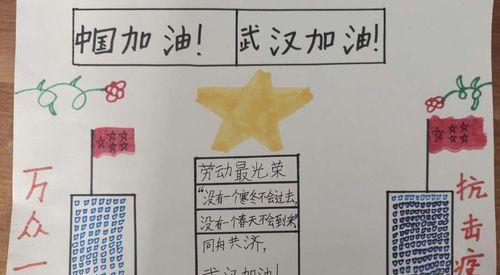 中国加油!
武汉加油!
劳动最光荣
"没有一个寒冬不会过去,
没有一个春天不会到来"
同舟共济,
武汉加油!
万众一
抗击疫